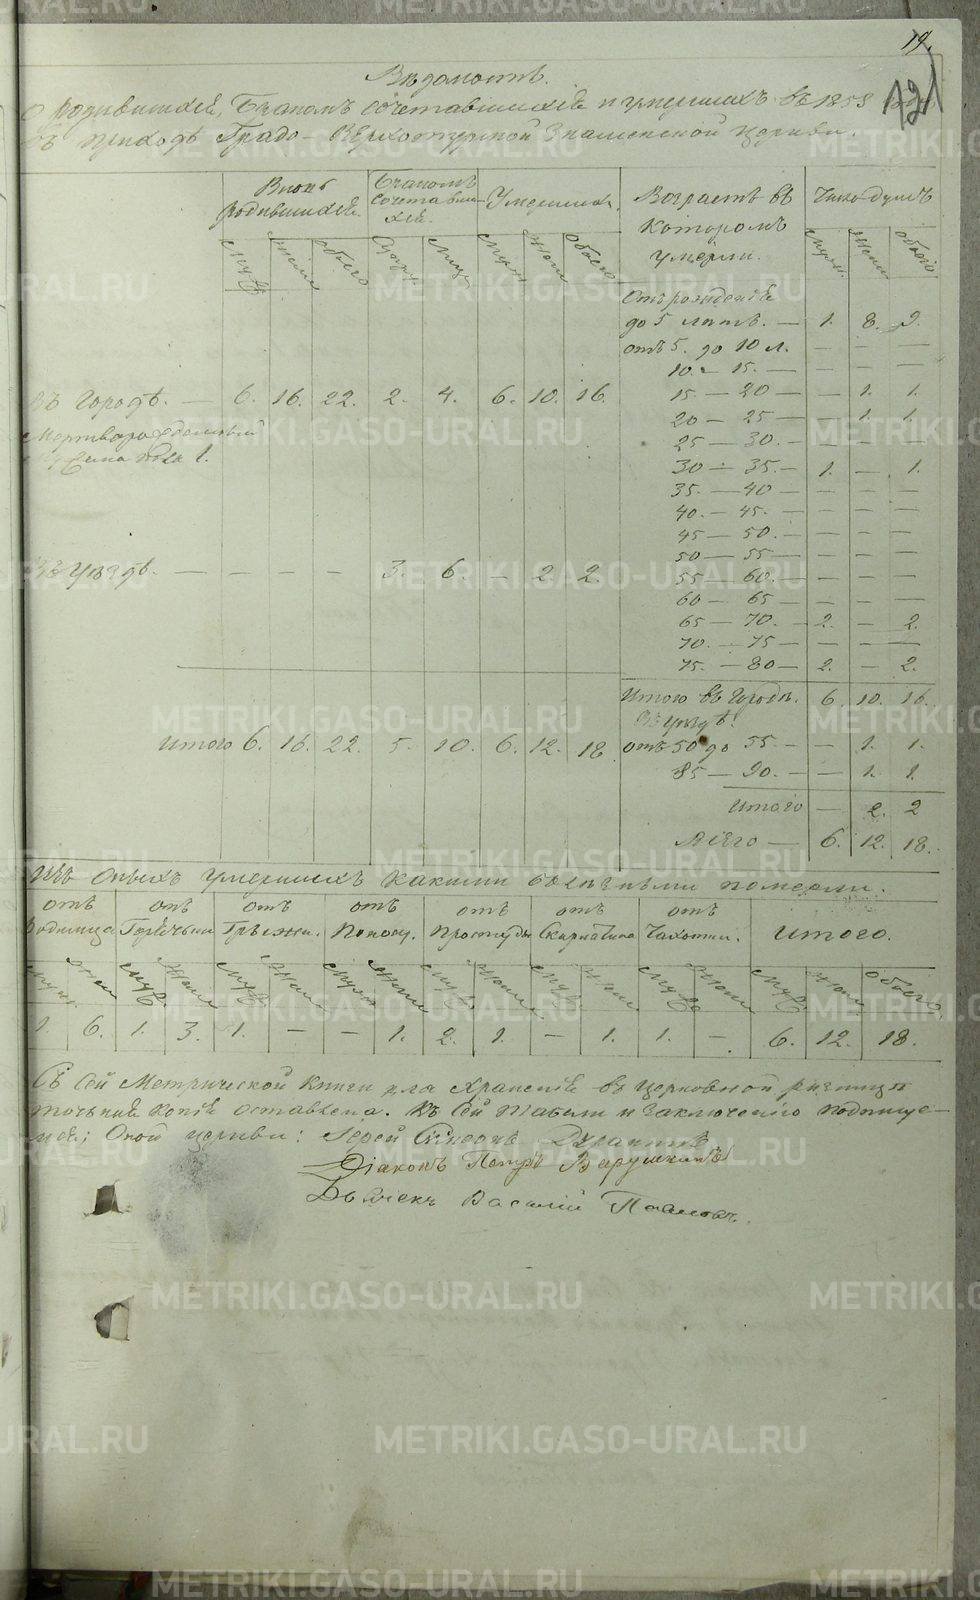 19.
12
Вѣдомость.
О родившихся, бракомъ сочетавшихся и умершихъ въ 1858
въ приходѣ Градо-Верхотурской Знаменской церкви.
Вновь родившихся. Бракомъ сочетавшихся. Умершихъ. Возрастъ въ которомъ умерли. Число душъ
муж. жен. обоего муж. жен. обоего муж. жен. обоего
Отъ рожденія
до 5 лѣтъ. — 1. 8. 9.
отъ 5. до 10 л. — — —
10 — 15. — — — —
Въ Городѣ. — 6. 16. 22. 2. 4. 6. 10. 16.
15. — 20 — — 1. 1.
20 — 25 — — 1. 1.
Мертворожденный
пола 1.
25 — 30. — — — —
30 — 35. — 1. — 1.
35. — 40 — — — —
40. — 45. — — — —
45 — 50. — — — —
50 — 55 — — — —
Въ Уѣздѣ. — — — — 3. 6. — 2. 2.
55 — 60. — — — —
60 — 65 — — — —
65 — 70. — 2. — 2.
70. — 75 — — — —
75. — 80 — 2. — 2.
Итого въ Городѣ. 6. 10. 16.
Въ Уѣздѣ.
Итого 6. 16. 22. 5. 10. 6. 12. 18
отъ 50 до 55. — — 1. 1.
85 — 90. — — 1. 1.
Итого — 2. 2
Всего — 6. 12. 18.
Изъ оныхъ умершихъ какими болѣзньми померли.
отъ Родимца отъ Горячьки отъ Грыжи. отъ Поносу. отъ Простуды отъ отъ Чахотки. Итого.
муж. жен. муж. жен. муж. жен. муж. жен. муж. жен. муж. жен. муж. жен. муж. жен. обоего
1. 6. 1. 3. 1. — — 1. 2. 1. — 1. 1. — 6. 12. 18.
Съ сей Метрической книги для храненія въ церковной ризницѣ
точьная копія оставлена. Къ сей табели и заключенію подпише-
мся; Оной церкви: Іерей Симеонъ
Діаконъ Петръ Варушкинъ
Дьячекъ Василій Поповъ.
METRIKI.GASO-URAL.RU